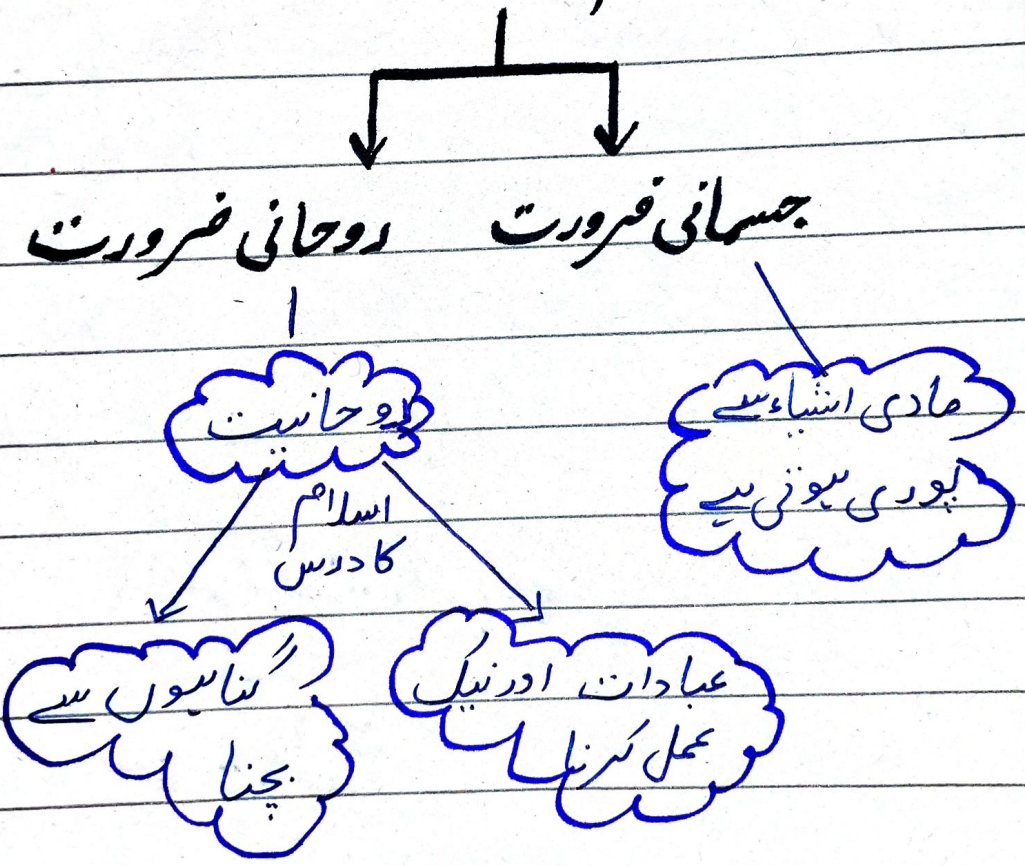 جسمانی ضرورت
روحانی ضرورت
مادی اشیاء سے
پوری ہوتی ہے
روحانیت
اسلام
کا درس
عبادات اور نیک
عمل کرنا
گناہوں سے
بچنا